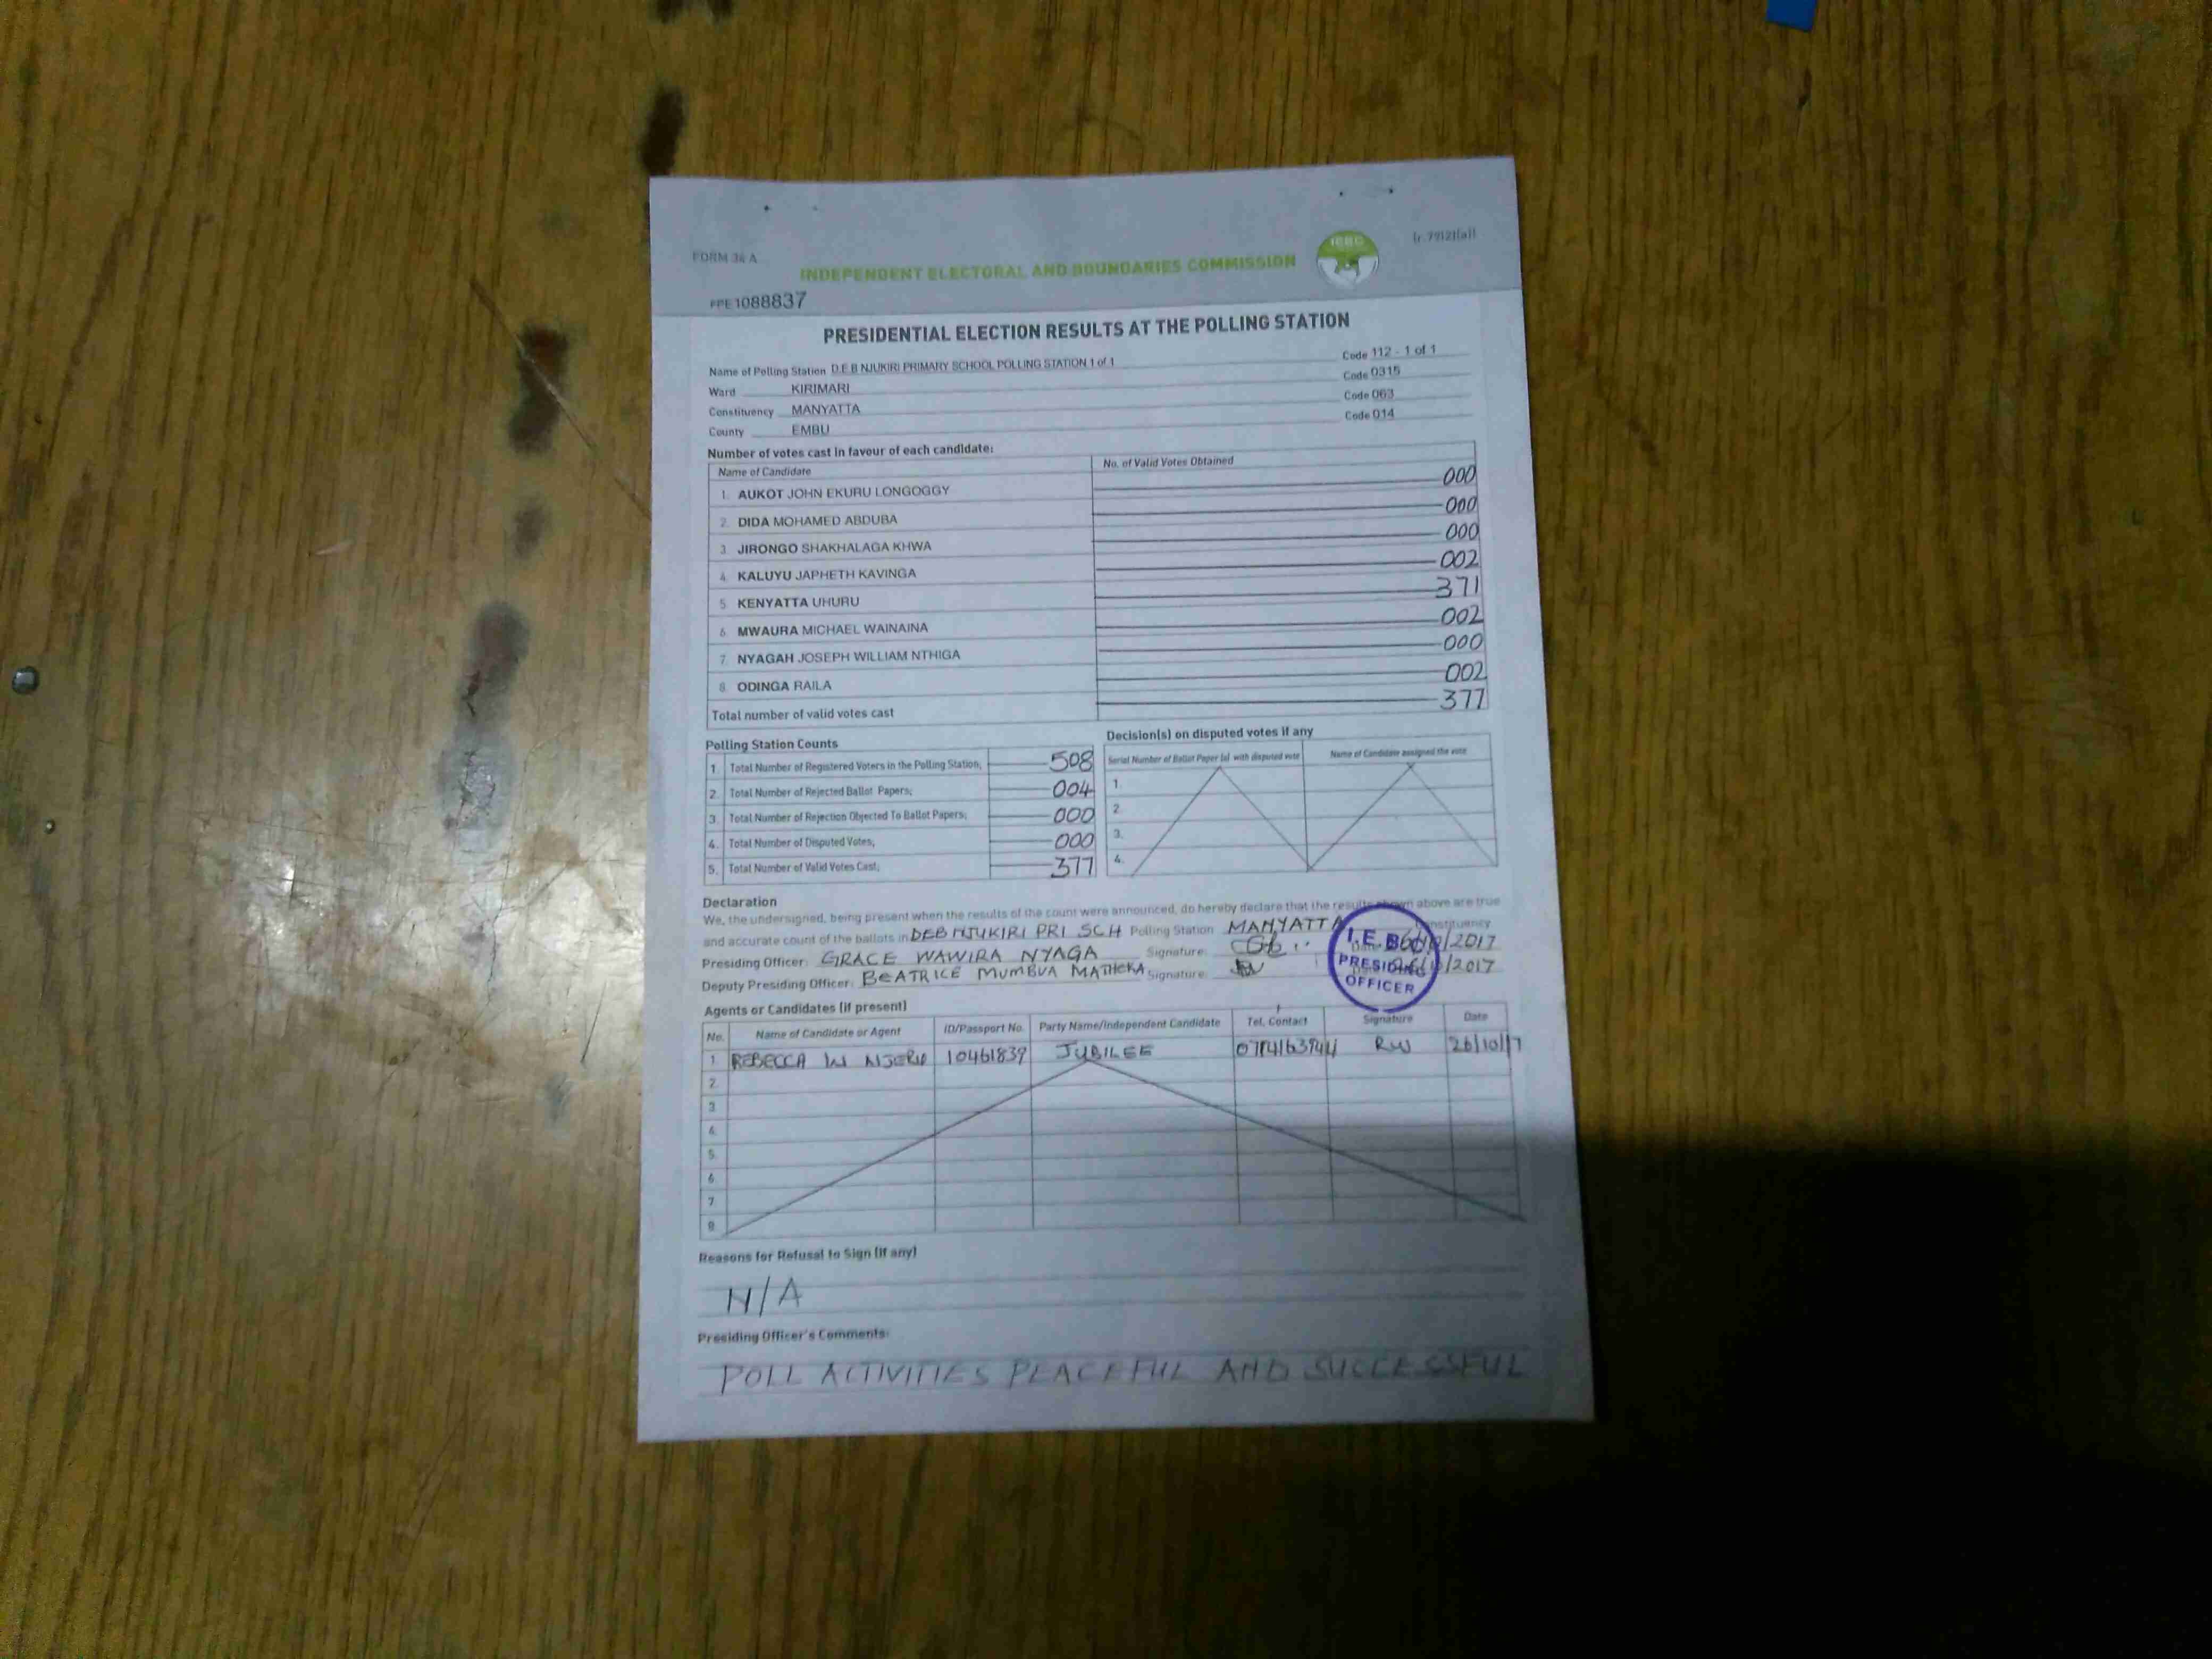 FORM 34 A
INDEPENDENT ELECTORAL AND BOUNDARIES COMMISSION
IEBC
PPE 1088837
PRESIDENTIAL ELECTION RESULTS AT THE POLLING STATION
Name of Polling Station D.E.B NJUKIRI PRIMARY SCHOOL POLLING STATION 1 of 1 Code 112 - 1 of 1
Ward KIRIMARI Code 0315
Constituency MANYATTA Code 063
County EMBU Code 014
Number of votes cast in favour of each candidate:
Name of Candidate No. of Valid Votes Obtained
1. AUKOT JOHN EKURU LONGOGGY 000
2. DIDA MOHAMED ABDUBA 000
3. JIRONGO SHAKHALAGA KHWA 000
4. KALUYU JAPHETH KAVINGA 002
5. KENYATTA UHURU 371
6. MWAURA MICHAEL WAINAINA 002
7. NYAGAH JOSEPH WILLIAM NTHIGA 000
8. ODINGA RAILA 002
Total number of valid votes cast 377
Polling Station Counts
1. Total Number of Registered Voters in the Polling Station; 508
2. Total Number of Rejected Ballot Papers; 004
3. Total Number of Rejection Objected To Ballot Papers; 000
4. Total Number of Disputed Votes; 000
5. Total Number of Valid Votes Cast; 377
Decision(s) on disputed votes if any
Serial Number of Ballot Paper (s) with disputed vote Name of Candidate assigned the vote
1.
2.
3.
4.
Declaration
We, the undersigned, being present when the results of the count were announced, do hereby declare that the results shown above are true
and accurate count of the ballots in DEB NJUKIRI PRI SCH Polling Station MANYATTA Constituency
Presiding Officer: GRACE WAWIRA NYAGA Signature: Date: 26/10/2017
Deputy Presiding Officer: BEATRICE MUMBUA MATHEKA Signature: 26/10/2017
I.E.B.C
PRESIDING
OFFICER
Agents or Candidates (if present)
No. Name of Candidate or Agent ID/Passport No. Party Name/Independent Candidate Tel. Contact Signature Date
1. REBECCA W NJERU 10461839 JUBILEE RW 26/10/17
2.
3.
4.
5.
6.
7.
8.
Reasons for Refusal to Sign (if any)
N/A
Presiding Officer's Comments:
POLL ACTIVITIES PEACEFUL AND SUCCESSFUL